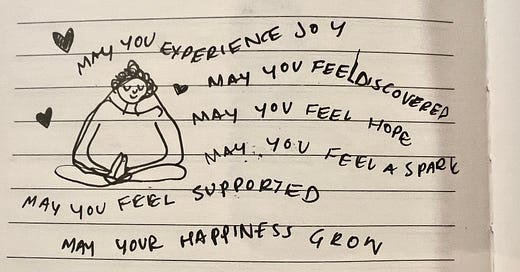 MAY YOU EXPERIENCE JOY
MAY YOU FEEL DISCOVERED
MAY YOU FEEL HOPE
MAY YOU FEEL A SPARK
MAY YOU FEEL SUPPORTED
MAY YOUR HAPPINESS GROW